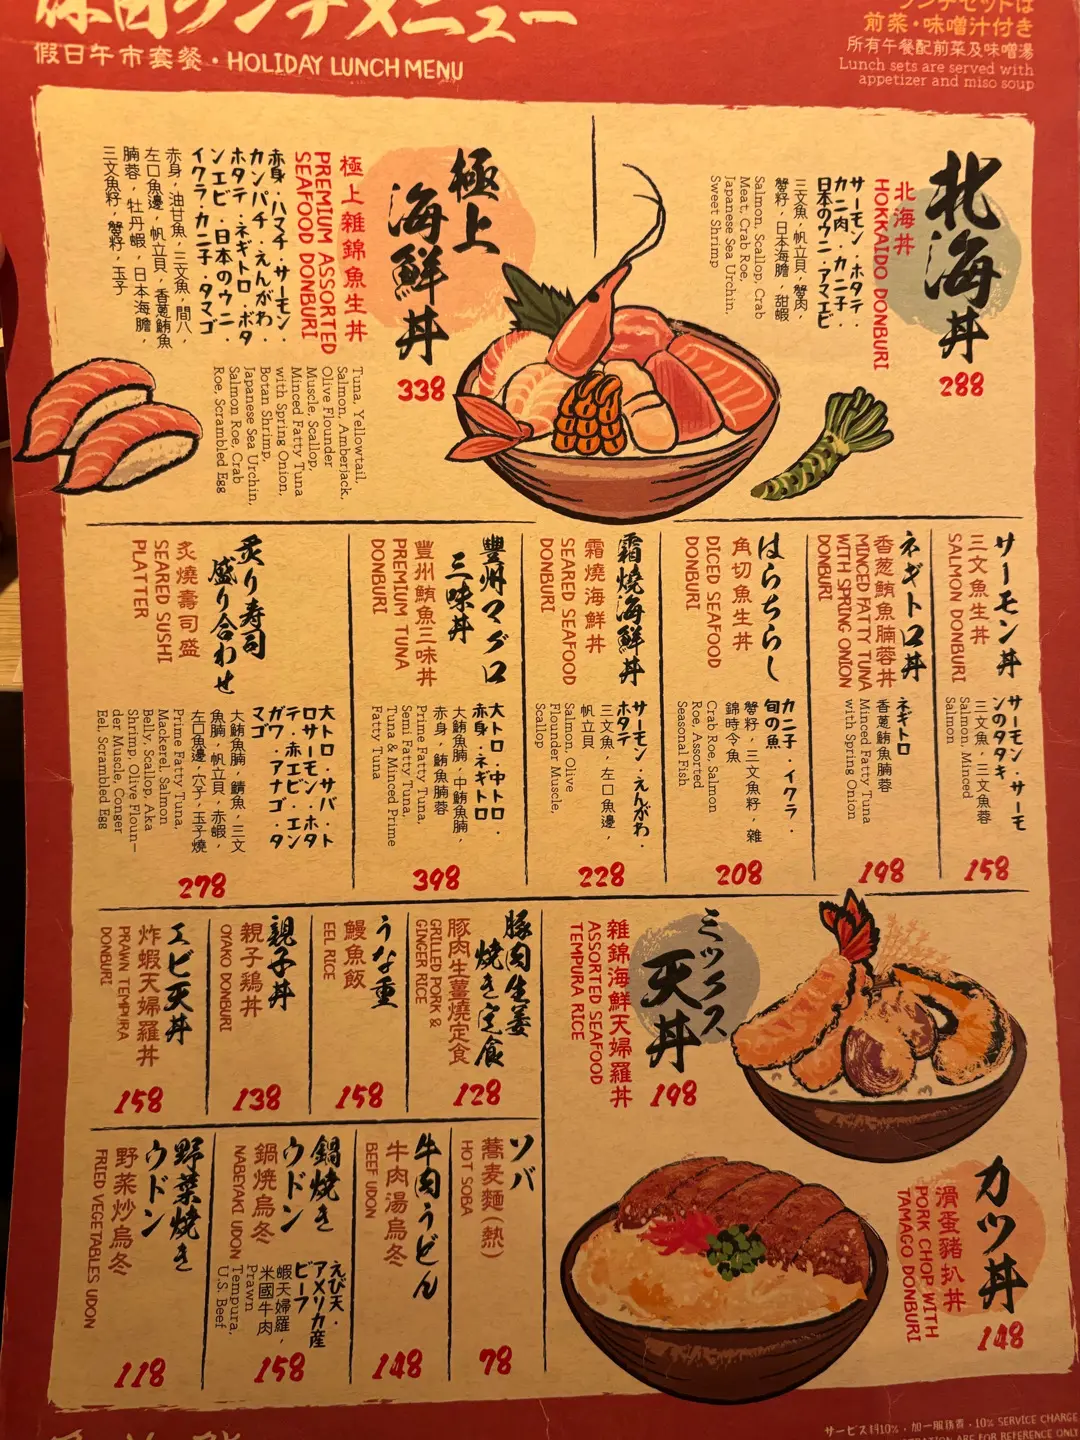 ランチメニュー
假日午市套餐・HOLIDAY LUNCH MENU
ランチセットは
前菜・味噌汁付き
所有午餐配前菜及味噌湯
Lunch sets are served with
appetizer and miso soup
北海丼
北海丼
HOKKAIDO DONBURI
サーモン・ホタテ・
カニ肉・カニ子・
日本のウニ・アマエビ
三文魚，帆立貝，蟹肉，
蟹籽，日本海膽，甜蝦
Salmon, Scallop, Crab
Meat, Crab Roe,
Japanese Sea Urchin,
Sweet Shrimp
288
極上
海鮮丼
極上雜錦魚生丼
PREMIUM ASSORTED
SEAFOOD DONBURI
赤身・ハマチ・サーモン・
カンパチ・えんがわ・
ホタテ・ネギトロ・ボタ
ンエビ・日本のウニ・
イクラ・カニ子・タマゴ
赤身，油甘魚，三文魚，間八，
左口魚邊，帆立貝，香蔥鮪魚
腩蓉，牡丹蝦，日本海膽，
三文魚籽，蟹籽，玉子
Tuna, Yellowtail,
Salmon, Amberjack,
Olive Flounder
Muscle, Scallop,
Minced Fatty Tuna
with Spring Onion,
Botan Shrimp,
Japanese Sea Urchin,
Salmon Roe, Crab
Roe, Scrambled Egg
338
サーモン丼
三文魚生丼
SALMON DONBURI
サーモン・サーモ
ンのタタキ
三文魚，三文魚蓉
Salmon, Minced
Salmon
158
ネギトロ丼
香葱鮪魚腩蓉丼
MINCED FATTY TUNA
WITH SPRING ONION
DONBURI
ネギトロ
香蔥鮪魚腩蓉
Minced Fatty Tuna
with Spring Onion
198
はらちらし
角切魚生丼
DICED SEAFOOD
DONBURI
カニ子・イクラ・
旬の魚
蟹籽，三文魚籽，雜
錦時令魚
Crab Roe, Salmon
Roe, Assorted
Seasonal Fish
208
霜焼海鮮丼
霜燒海鮮丼
SEARED SEAFOOD
DONBURI
サーモン・えんがわ・
ホタテ
三文魚，左口魚邊，
帆立貝
Salmon, Olive
Flounder Muscle,
Scallop
228
豐州マグロ
三味丼
豐州鮪魚三味丼
PREMIUM TUNA
DONBURI
大トロ・中トロ・
赤身・ネギトロ
大鮪魚腩，中鮪魚腩，
赤身，鮪魚腩蓉
Prime Fatty Tuna,
Semi Fatty Tuna,
Tuna & Minced Prime
Fatty Tuna
398
炙り寿司
盛り合わせ
炙燒壽司盛
SEARED SUSHI
PLATTER
大トロ・サバ・ト
ロサーモン・ホタ
テ・赤エビ・エン
ガワ・アナゴ・タ
マゴ
大鮪魚腩，鯖魚，三文
魚腩，帆立貝，赤蝦，
左口魚邊，穴子，玉子燒
Prime Fatty Tuna,
Mackerel, Salmon
Belly, Scallop, Aka
Shrimp, Olive Floun-
der Muscle, Conger
Eel, Scrambled Egg
278
ミックス
天丼
雜錦海鮮天婦羅丼
ASSORTED SEAFOOD
TEMPURA RICE
198
豚肉生姜
焼き定食
豚肉生薑燒定食
GRILLED PORK &
GINGER RICE
128
うな重
鰻魚飯
EEL RICE
158
親子丼
親子鶏丼
OYAKO DONBURI
138
エビ天丼
炸蝦天婦羅丼
PRAWN TEMPURA
DONBURI
158
カツ丼
滑蛋豬扒丼
PORK CHOP WITH
TAMAGO DONBURI
148
ソバ
蕎麦麵(熱)
HOT SOBA
78
牛肉うどん
牛肉湯烏冬
BEEF UDON
148
鍋焼き
ウドン
鍋燒烏冬
NABEYAKI UDON
えび天・
アメリカ産
ビーフ
蝦天婦羅，
米國牛肉
Prawn
Tempura,
U.S. Beef
158
野菜焼き
ウドン
野菜炒烏冬
FRIED VEGETABLES UDON
118
サービス料10%・加一服務費・10% SERVICE CHARGE
ARE FOR REFERENCE ONLY